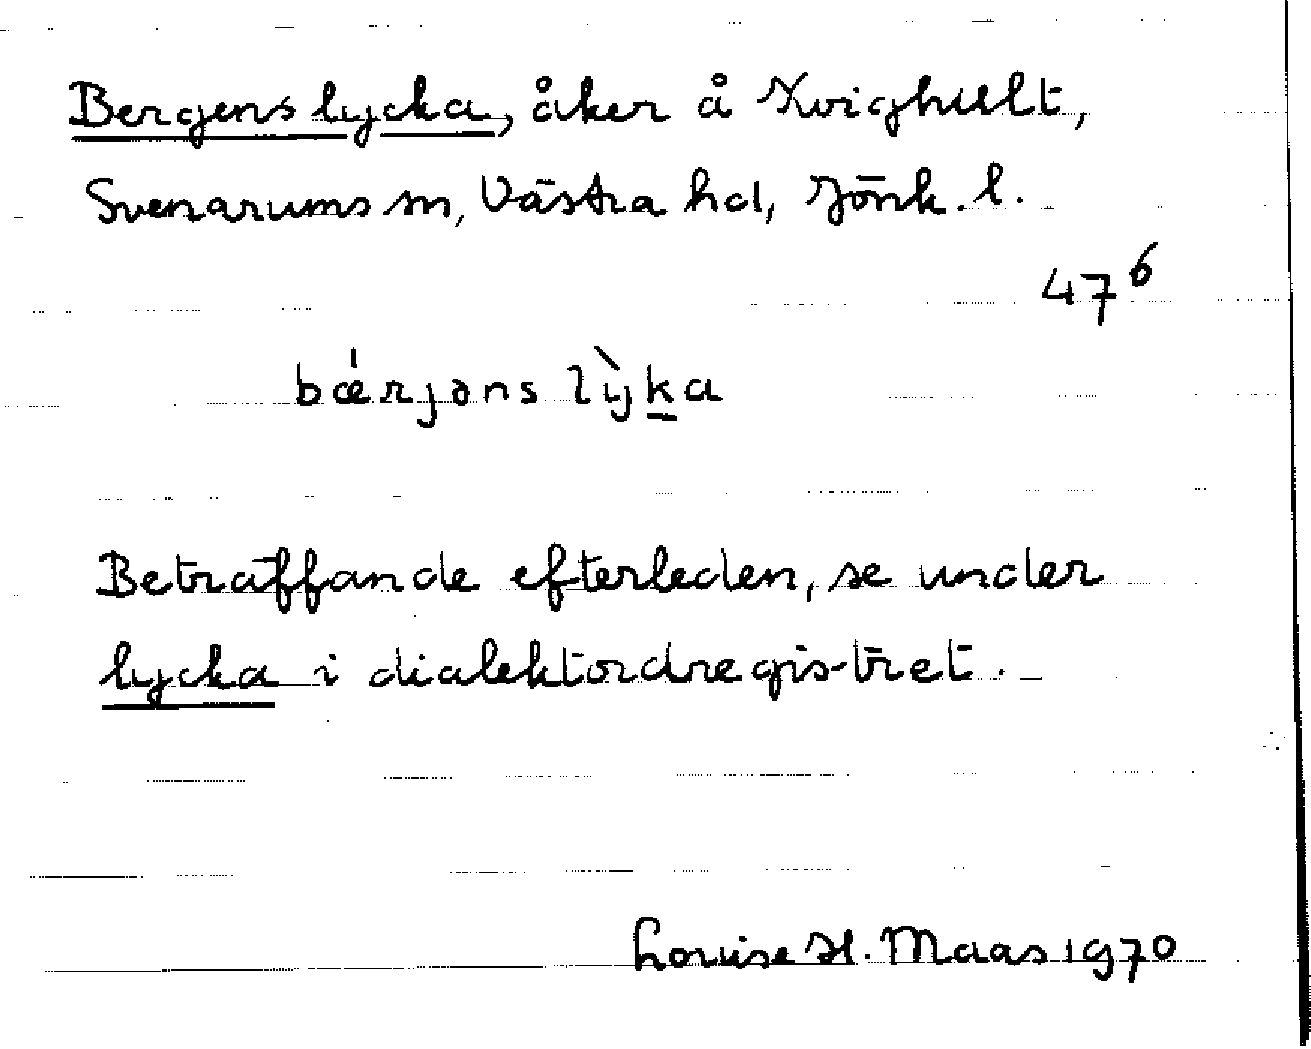 Bergens lycka, åker å Kvighult,
Svenarums sn, Västra hd, Jönk. l.
47⁶
bǽrjəns lỳka
Beträffande efterleden, se under
lycka i dialektordregistret.
Louise H. Maas 1970